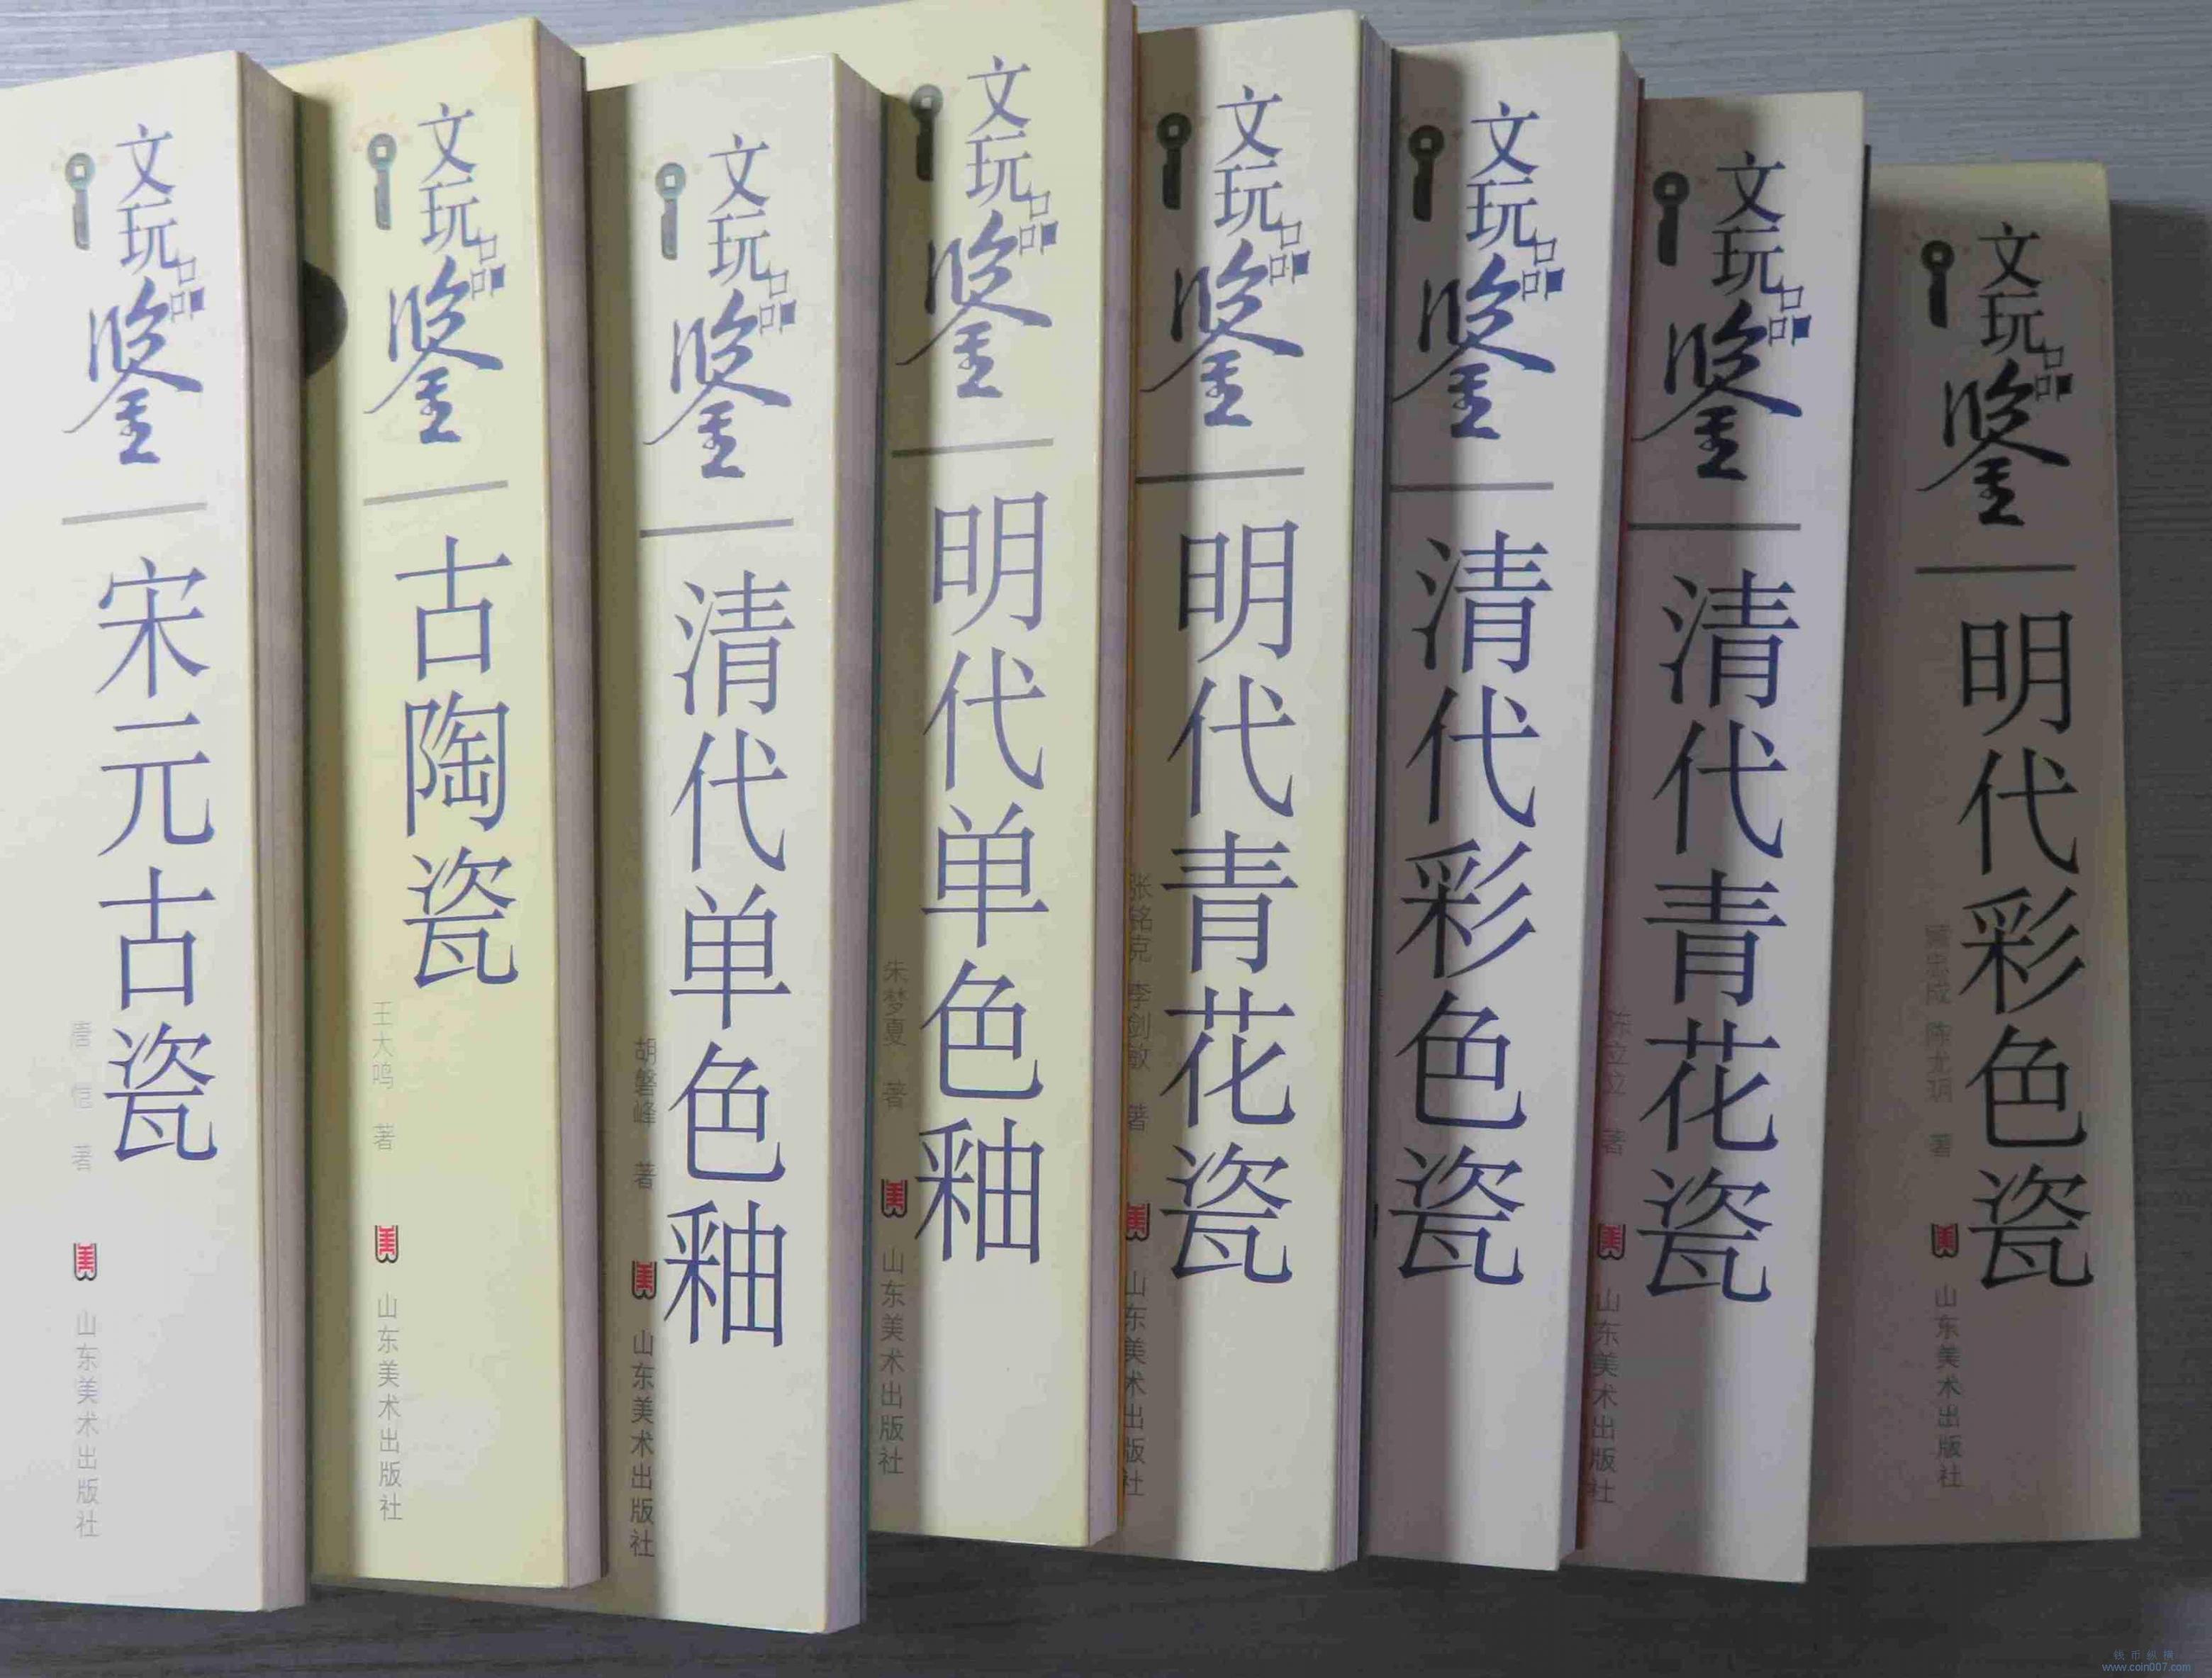 文玩品鉴
宋元古瓷
唐 恺 著
山东美术出版社
文玩品鉴
古陶瓷
王大鸣 著
山东美术出版社
文玩品鉴
清代单色釉
胡磐峰 著
山东美术出版社
文玩品鉴
明代单色釉
朱梦夏 著
山东美术出版社
文玩品鉴
明代青花瓷
张铭克 李剑敏 著
山东美术出版社
文玩品鉴
清代彩色瓷
文玩品鉴
清代青花瓷
陈立立 著
山东美术出版社
文玩品鉴
明代彩色瓷
忠成 陈尤玥 著
山东美术出版社
钱币纵横
www.coin007.com